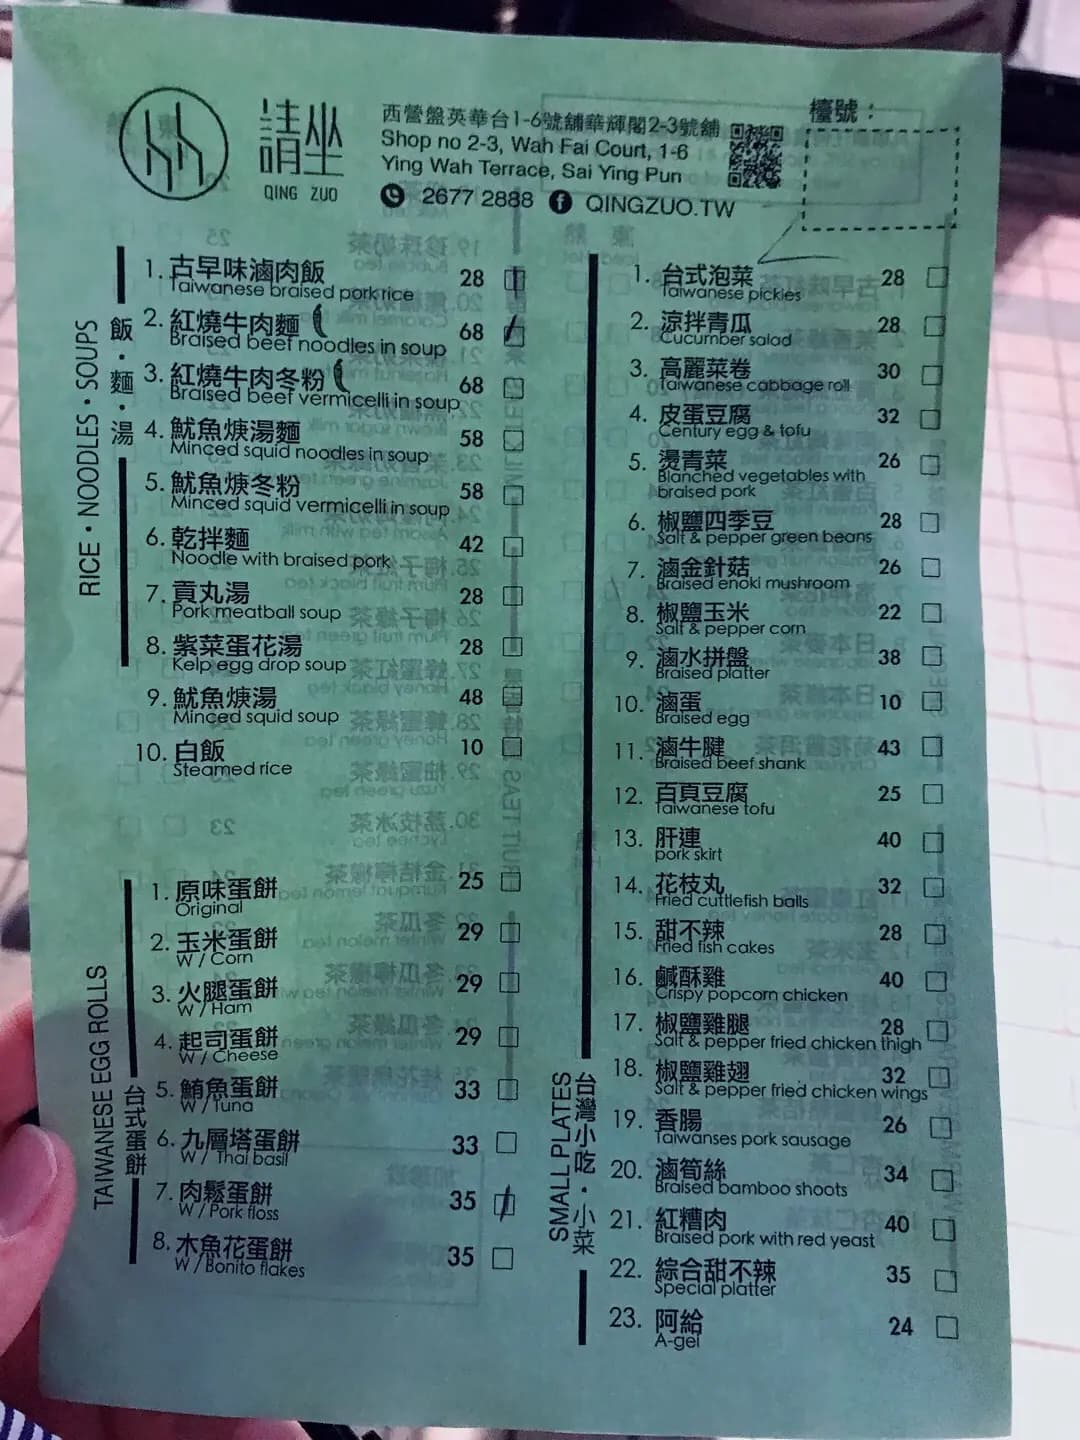 請坐
QING ZUO
西營盤英華台1-6號舖華輝閣2-3號舖
Shop no 2-3, Wah Fai Court, 1-6
Ying Wah Terrace, Sai Ying Pun
2677 2888 QINGZUO.TW
檯號：
RICE・NOODLES・SOUPS
飯・麵・湯
1. 古早味滷肉飯 28
Taiwanese braised pork rice
2. 紅燒牛肉麵 68
Braised beef noodles in soup
3. 紅燒牛肉冬粉 68
Braised beef vermicelli in soup
4. 魷魚焿湯麵 58
Minced squid noodles in soup
5. 魷魚焿冬粉 58
Minced squid vermicelli in soup
6. 乾拌麵 42
Noodle with braised pork
7. 貢丸湯 28
Pork meatball soup
8. 紫菜蛋花湯 28
Kelp egg drop soup
9. 魷魚焿湯 48
Minced squid soup
10. 白飯 10
Steamed rice
TAIWANESE EGG ROLLS
台式蛋餅
1. 原味蛋餅 25
Original
2. 玉米蛋餅 29
W / Corn
3. 火腿蛋餅 29
W / Ham
4. 起司蛋餅 29
W / Cheese
5. 鮪魚蛋餅 33
W / Tuna
6. 九層塔蛋餅 33
W / Thai basil
7. 肉鬆蛋餅 35
W / Pork floss
8. 木魚花蛋餅 35
W / Bonito flakes
SMALL PLATES
台灣小吃・小菜
1. 台式泡菜 28
Taiwanese pickles
2. 涼拌青瓜 28
Cucumber salad
3. 高麗菜卷 30
Taiwanese cabbage roll
4. 皮蛋豆腐 32
Century egg & tofu
5. 燙青菜 26
Blanched vegetables with
braised pork
6. 椒鹽四季豆 28
Salt & pepper green beans
7. 滷金針菇 26
Braised enoki mushroom
8. 椒鹽玉米 22
Salt & pepper corn
9. 滷水拼盤 38
Braised platter
10. 滷蛋 10
Braised egg
11. 滷牛腱 43
Braised beef shank
12. 百頁豆腐 25
Taiwanese tofu
13. 肝連 40
pork skirt
14. 花枝丸 32
Fried cuttlefish balls
15. 甜不辣 28
Fried fish cakes
16. 鹹酥雞 40
Crispy popcorn chicken
17. 椒鹽雞腿 28
Salt & pepper fried chicken thigh
18. 椒鹽雞翅 32
Salt & pepper fried chicken wings
19. 香腸 26
Taiwanses pork sausage
20. 滷筍絲 34
Braised bamboo shoots
21. 紅糟肉 40
Braised pork with red yeast
22. 綜合甜不辣 35
Special platter
23. 阿給 24
A-gei